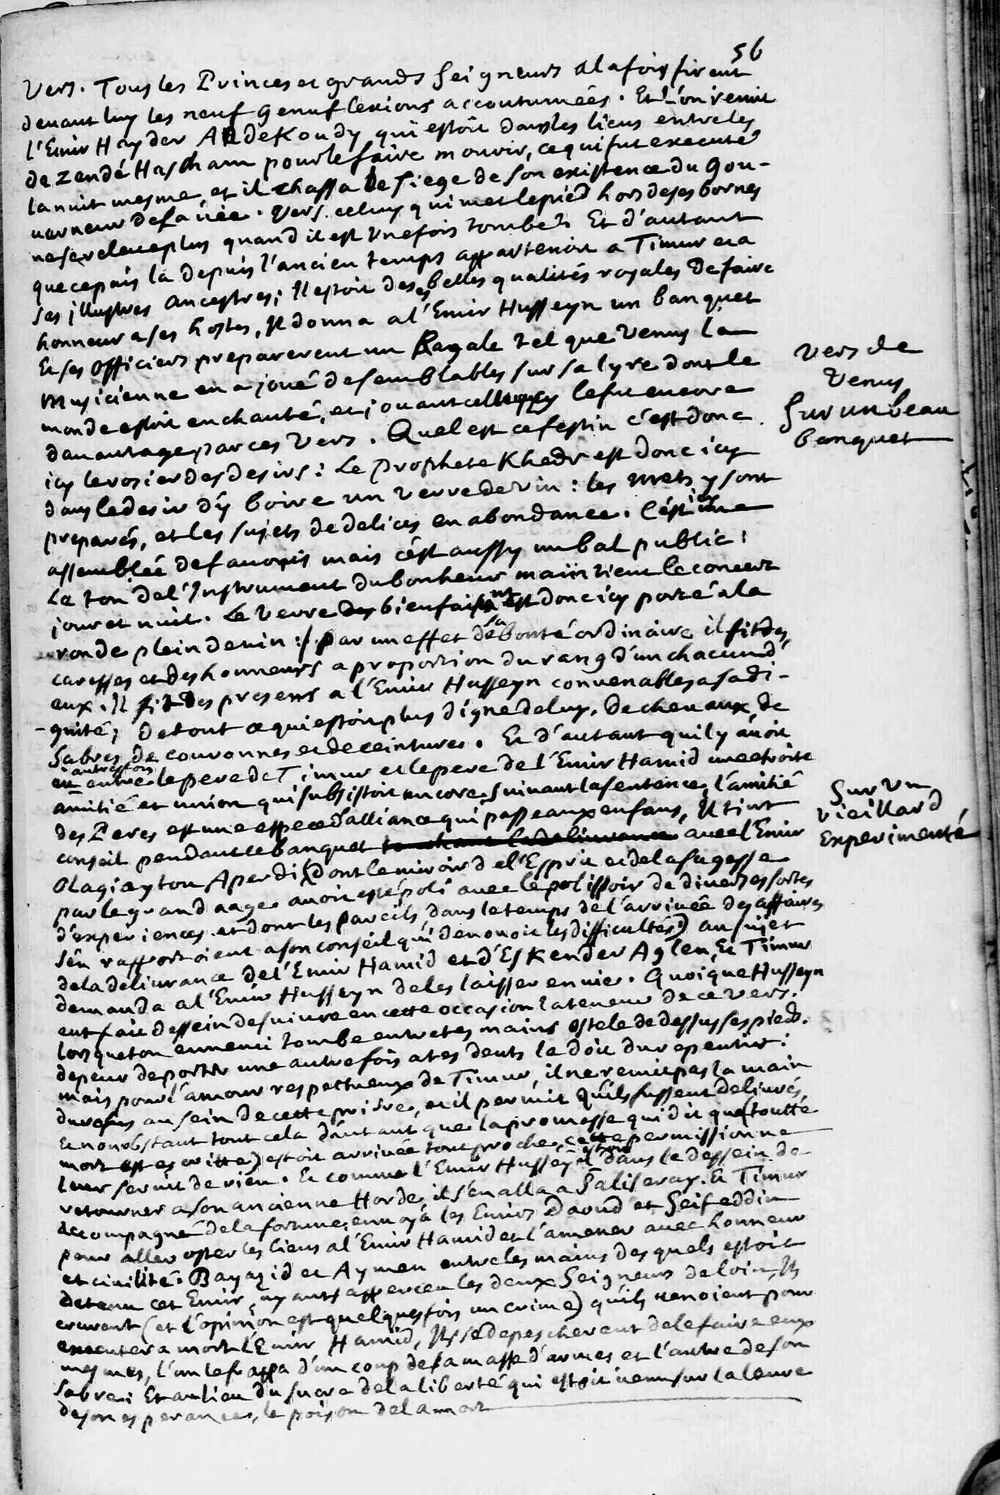 56
Vers. Tous les Princes et grands seigneurs a la fois firent
devant luy les neuf genuflexions accoutumées. Et l'on remit
l'Emir Hayder AndeKoudy, qui estoit dans les liens entre les
de Zendé Hascham pour le faire mourir, ce qui fut executé
la nuit mesme, et il chassa le siege de son existence du gou-
verneur de sa vie. Vers. celuy qui met le pied hors de ses bornes
ne se releve plus quand il est une fois tombé. Et d'autant
que ce païs là depuis l'ancien temps appartenoit a Timur et a
ses illustres ancestres; Il estoit des belles qualités royales de faire
honneur a ses hostes, Il donna a l'Emir Husseyn un banquet
Et ses officiers preparerent un Regale tel que Venus la
musicienne en a joué de semblables sur sa lyre dont le
monde estoit enchanté, et jouant celluycy le fut encore
davantage par ces vers. Quel est ce festin c'est donc
icy le rosier des desirs: Le Prophete Khedr est donc icy
dans le desir d'y boire un verre de vin: les mets y sont
preparés, et les sujets de delices en abondance. C'est icy une
assemblée de favoris mais c'est aussy un bal public:
Le ton de l'Instrument du bonheur maintient le concert
jour et nuit. Le verre des bienfaits est donc icy porté a la
ronde plein de vin: par un effet de sa bonté ordinaire il fit des
caresses et des honneurs a proportion du rang d'un chacun d'
eux. Il fit des presens a l'Emir Husseyn convenables a sa di-
-gnité; De tout ce qui estoit plus digne de luy, de chevaux, de
Sabres, de couronnes et de ceintures. Et d'autant qu'il y avoit
eu autrefois entre le pere de Timur et le pere de l'Emir Hamid une etroite
amitié et union qui subsistoit encore suivant la sentence, l'amitié
des Peres est une espece d'alliance qui passe aux enfans, Il tint
conseil pendant le banquet avec l'Emir
Olagiaytou Aperdi (dont le miroir de l'Esprit et de la sagesse
par le grand aage avoit esté poli avec le polissoir de diverses sortes
d'experiences et dont les pareils dans le temps de l'arrivée des affaires
s'en rapportoient a son conseil qui denouoit les difficultés) au sujet
de la delivrance de l'Emir Hamid et d'Eskender Aglen, Et Timur
demanda a l'Emir Husseyn de les laisser en vie. Quoique Husseyn
eut fait dessein de suivre en cette occasion la teneur de ce vers.
lorsque ton ennemi tombe entre tes mains oste le de dessus ses pieds.
de peur de porter une autre fois a tes dents le doit du repentir:
mais pour l'amour respectueux de Timur, il ne remit pas la main
du refus au sein de cette priere, et il permit qu'ils fussent delivrés,
Et nonobstant tout cela d'autant que la promesse qui dit que (toutte
mort est escritte) estoit arrivée tout proche, cette permission ne
leur servit de rien. Et comme l'Emir Husseyn estoit dans le dessein de
retourner a son ancienne Horde, il s'en alla a Saliseray. Et Timur
accompagné de la fortune, envoya les Emirs Daoud et Seifeddin
pour aller oster les liens a l'Emir Hamid et l'amener avec honneur
et civilité. Bayazid et Aymen entre les mains des quels estoit
detenu cet Emir, ayants apperceu les deux Seigneurs de loin, Ils
crurent (et l'opinion est quelquesfois un crime) qu'ils venoient pour
executer a mort l'Emir Hamid, Ils se depescherent de le faire eux
mesmes, l'un le frappa d'un coup de sa masse d'armes et l'autre de son
Sabre: Et au lieu du sucre de la liberté qui estoit venu sur la levre
de son esperances, le poison de la mort
Vers de
Venus
sur un beau
banquet
Sur un
vieillard
Experimenté